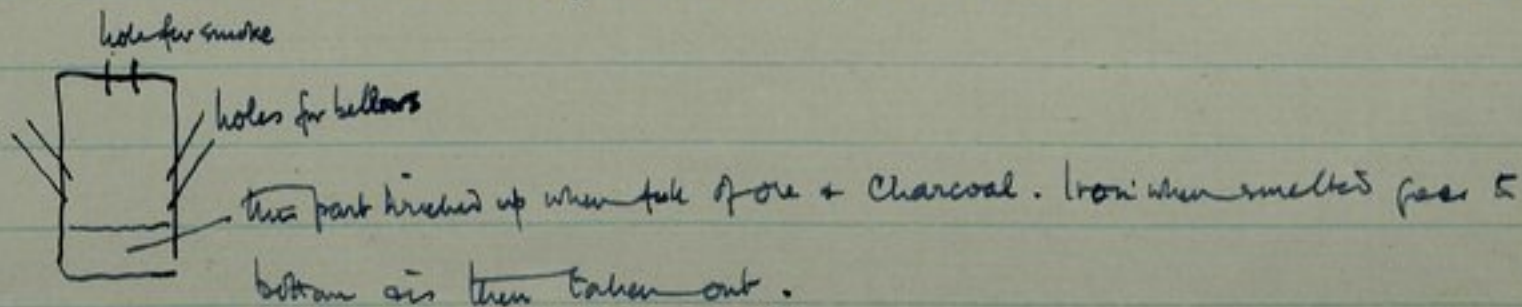 hole for smoke
holes for bellows
this part bricked up when full of ore + Charcoal. Iron when smelted goes to
bottom & is then taken out.